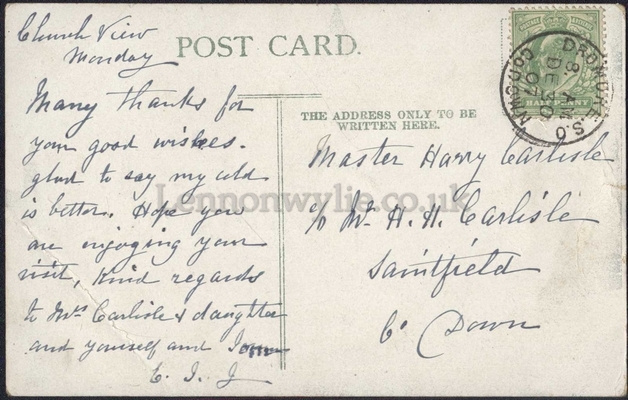 Church View
Monday
POST CARD.
Many thanks for
your good wishes.
glad to say my cold
is better. Hope you
are enjoying your
visit, Kind regards
to Mrs Carlisle & daughter
and yourself and
THE ADDRESS ONLY TO BE
WRITTEN HERE.
Master Harry Carlisle
c/o Mr. H. H. Carlisle
Saintfield
Co Down
DROMORE. S.O
CO. DOWN
DE 30
07
HALFPENNY
Lennonwylie.co.uk